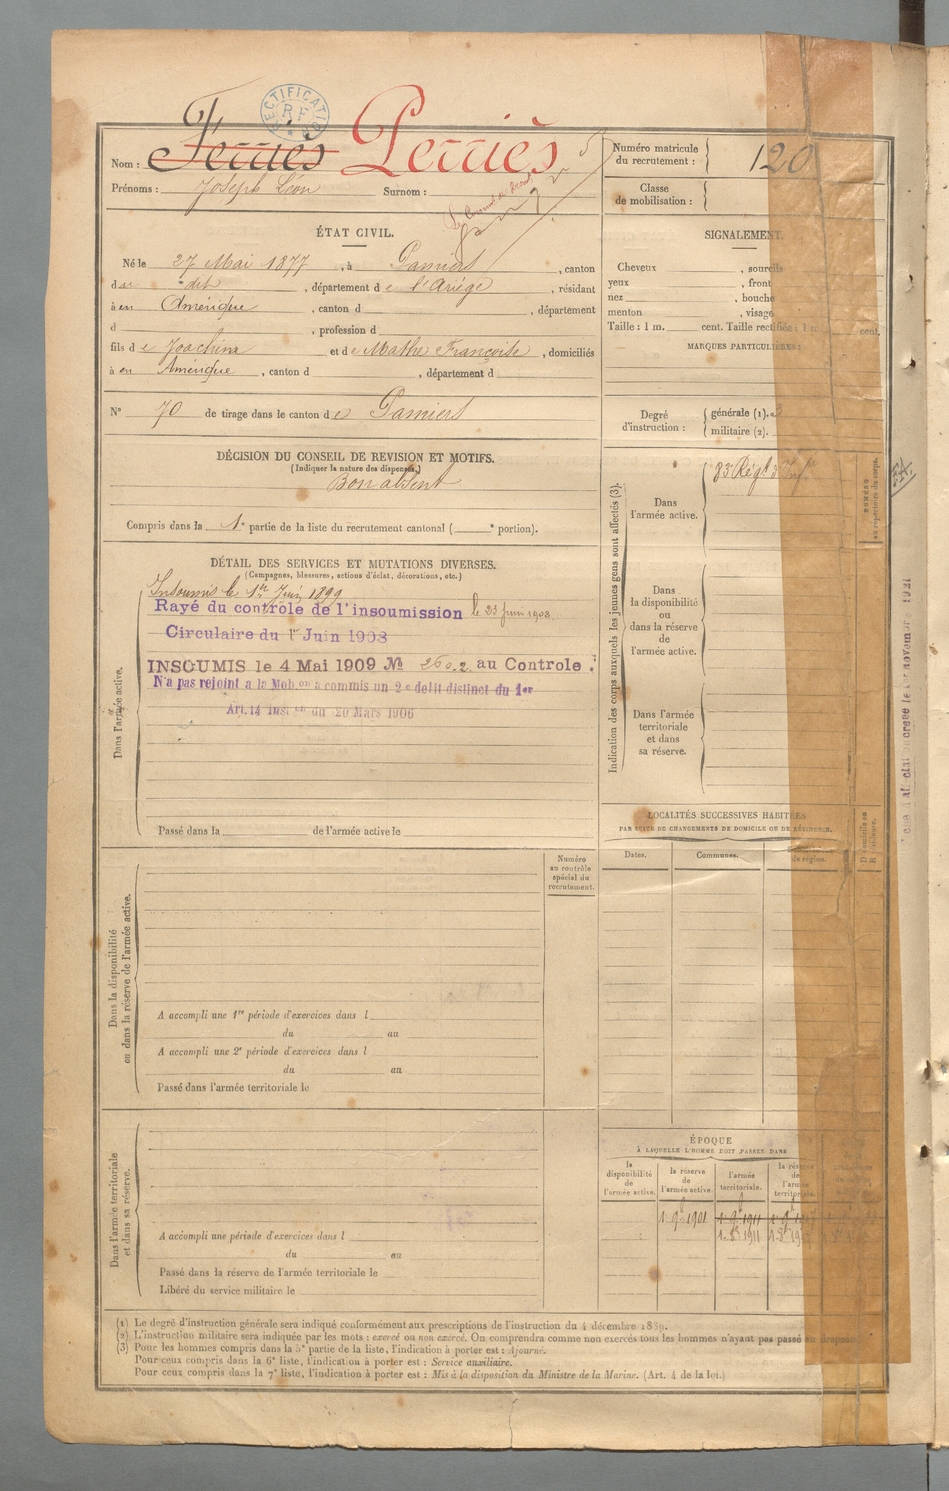 RECTIFICATION
RF
Nom : Ferriès Perriès
Prénoms : Joseph Léon Surnom :
Numéro matricule
du recrutement : 120
Classe
de mobilisation :
ÉTAT CIVIL.
Né le 27 Mai 1877, à Pamiers, canton
du dit, département de l'Ariège, résidant
à en Amérique, canton d , département
d , profession d
fils de Joachim et de Mathe Françoise, domiciliés
à en Amérique, canton d , département d
N° 70 de tirage dans le canton de Pamiers
SIGNALEMENT.
Cheveux , sourcils
yeux , front
nez , bouche
menton , visage
Taille : 1 m. cent. Taille rectifiée : 1 m. cent.
MARQUES PARTICULIÈRES :
Degré
d'instruction :
générale (1). 3
militaire (2).
DÉCISION DU CONSEIL DE REVISION ET MOTIFS.
(Indiquer la nature des dispenses.)
Bon absent
Compris dans la 1e partie de la liste du recrutement cantonal ( e portion).
DÉTAIL DES SERVICES ET MUTATIONS DIVERSES.
(Campagnes, blessures, actions d'éclat, décorations, etc.)
Dans l'armée active.
Insoumis le 1er Juin 1899
Rayé du contrôle de l'insoumission le 23 juin 1908
Circulaire du 1er Juin 1908
INSOUMIS le 4 Mai 1909 № 260.2 au Controle.
N'a pas rejoint a la Mob.on a commis un 2e delit distinct du 1er
Art. 14 Inst.on du 20 Mars 1906
Passé dans la de l'armée active le
Indication des corps auxquels les jeunes gens sont affectés (3).
Dans
l'armée active.
83e Régt d'Inf.
Dans
la disponibilité
ou
dans la réserve
de
l'armée active.
Dans l'armée
territoriale
et dans
sa réserve.
NUMÉRO
au répertoire du corps.
LOCALITÉS SUCCESSIVES HABITÉES
PAR SUITE DE CHANGEMENTS DE DOMICILE OU DE RÉSIDENCE.
Dates. Communes.
de région.
Dans la disponibilité
ou dans la réserve de l'armée active.
Numéro
au contrôle
spécial du
recrutement.
A accompli une 1re période d'exercices dans l
du au
A accompli une 2e période d'exercices dans l
du au
Passé dans l'armée territoriale le
Dans l'armée territoriale
et dans sa réserve.
A accompli une période d'exercices dans l
du au
Passé dans la réserve de l'armée territoriale le
Libéré du service militaire le
ÉPOQUE
À LAQUELLE L'HOMME DOIT PASSER DANS
la
disponibilité
de
l'armée active.
la réserve
de
l'armée active.
l'armée
territoriale.
la réserve
de
l'armée
territoriale.
1 9bre 1901
(1) Le degré d'instruction générale sera indiqué conformément aux prescriptions de l'instruction du 4 décembre 1889.
(2) L'instruction militaire sera indiquée par les mots : exercé ou non exercé. On comprendra comme non exercés tous les hommes n'ayant pas passé
(3) Pour les hommes compris dans la 5e partie de la liste, l'indication à porter est : Ajourné.
Pour ceux compris dans la 6e liste, l'indication à porter est : Service auxiliaire.
Pour ceux compris dans la 7e liste, l'indication à porter est : Mis à la disposition du Ministre de la Marine. (Art. 4 de la loi.)